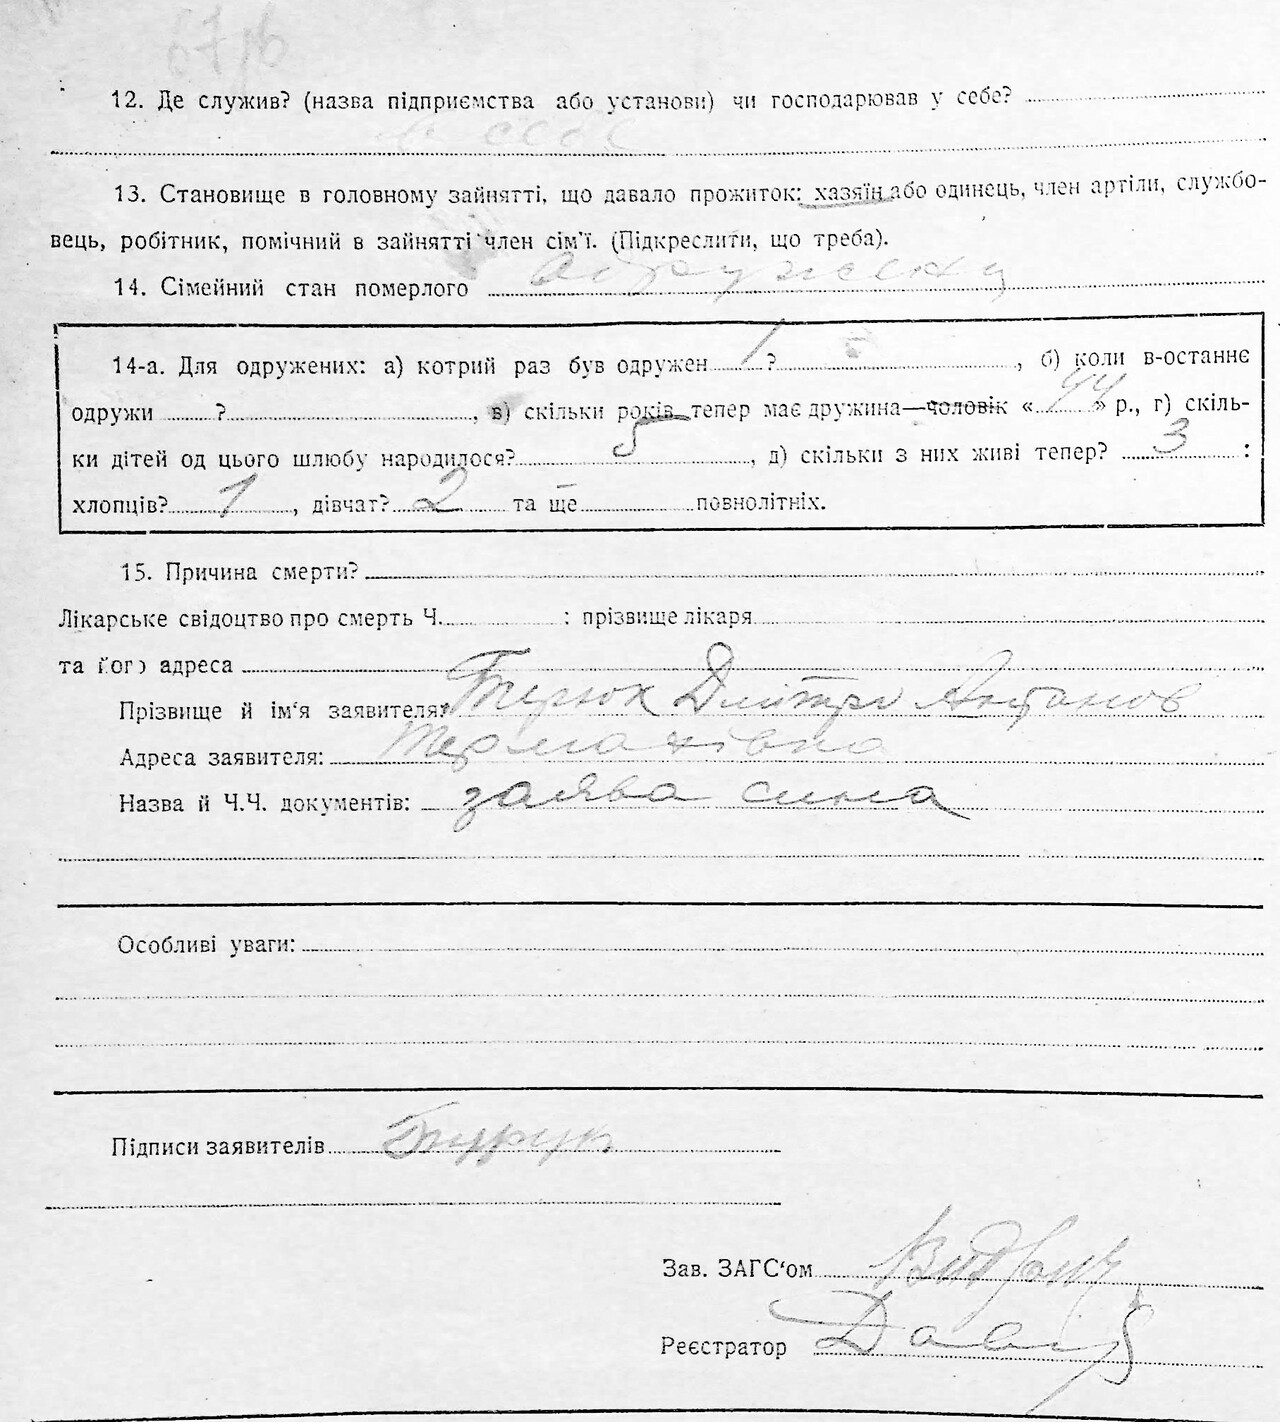 67 зв
12. Де служив? (назва підприємства або установи) чи господарював у себе?
в себе
13. Становище в головному зайнятті, що давало прожиток: хазяїн або одинець, член артіли, службо-
вець, робітник, помічний в зайнятті член сім'ї. (Підкреслити, що треба).
14. Сімейний стан померлого одружений
14-а. Для одружених: а) котрий раз був одружен 1 ?, б) коли в-останнє
одружи ?, в) скільки років тепер має дружина—чоловік « 44 » р., г) скіль-
ки дітей од цього шлюбу народилося? 5, д) скільки з них живі тепер? 3 :
хлопців? 1, дівчат? 2 та ще — повнолітніх.
15. Причина смерти?
Лікарське свідоцтво про смерть Ч. : прізвище лікаря
та його адреса
Прізвище й ім'я заявителя: Дмитро Антонов
Адреса заявителя: Германівка
Назва й Ч.Ч. документів: заява сина
Особливі уваги:
Підписи заявителів
Зав. ЗАГС'ом
Реєстратор